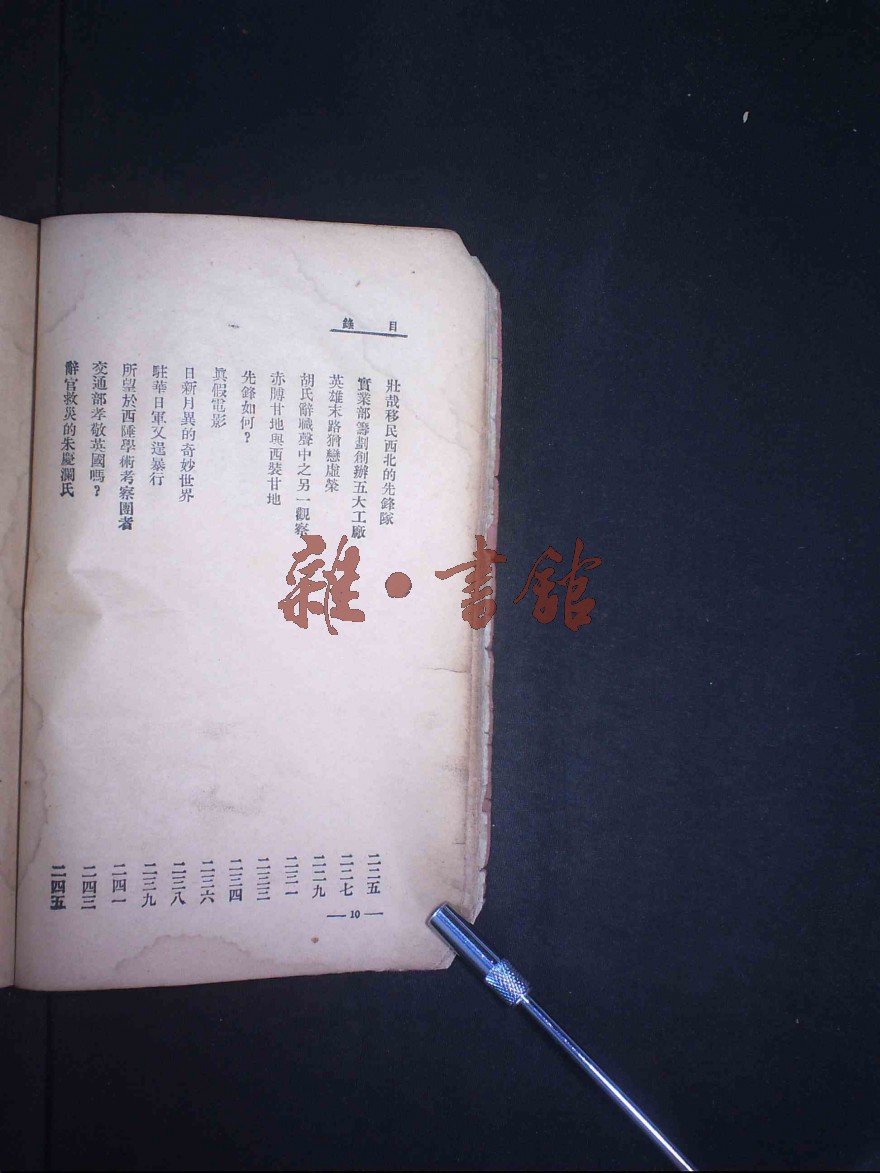 目錄
壯哉移民西北的先鋒隊 二二五
實業部籌劃創辦五大工廠 二二七
英雄末路猶戀虛榮 二二九
胡氏辭職聲中之另一觀察 二三一
赤膊甘地與西裝甘地 二三三
先鋒如何？ 二三四
眞假電影 二三六
日新月異的奇妙世界 二三八
駐華日軍又逞暴行 二三九
所望於西陲學術考察團者 二四一
交通部孝敬英國嗎？ 二四三
辭官救災的朱慶瀾氏 二四五
— 10 —
雜·書館